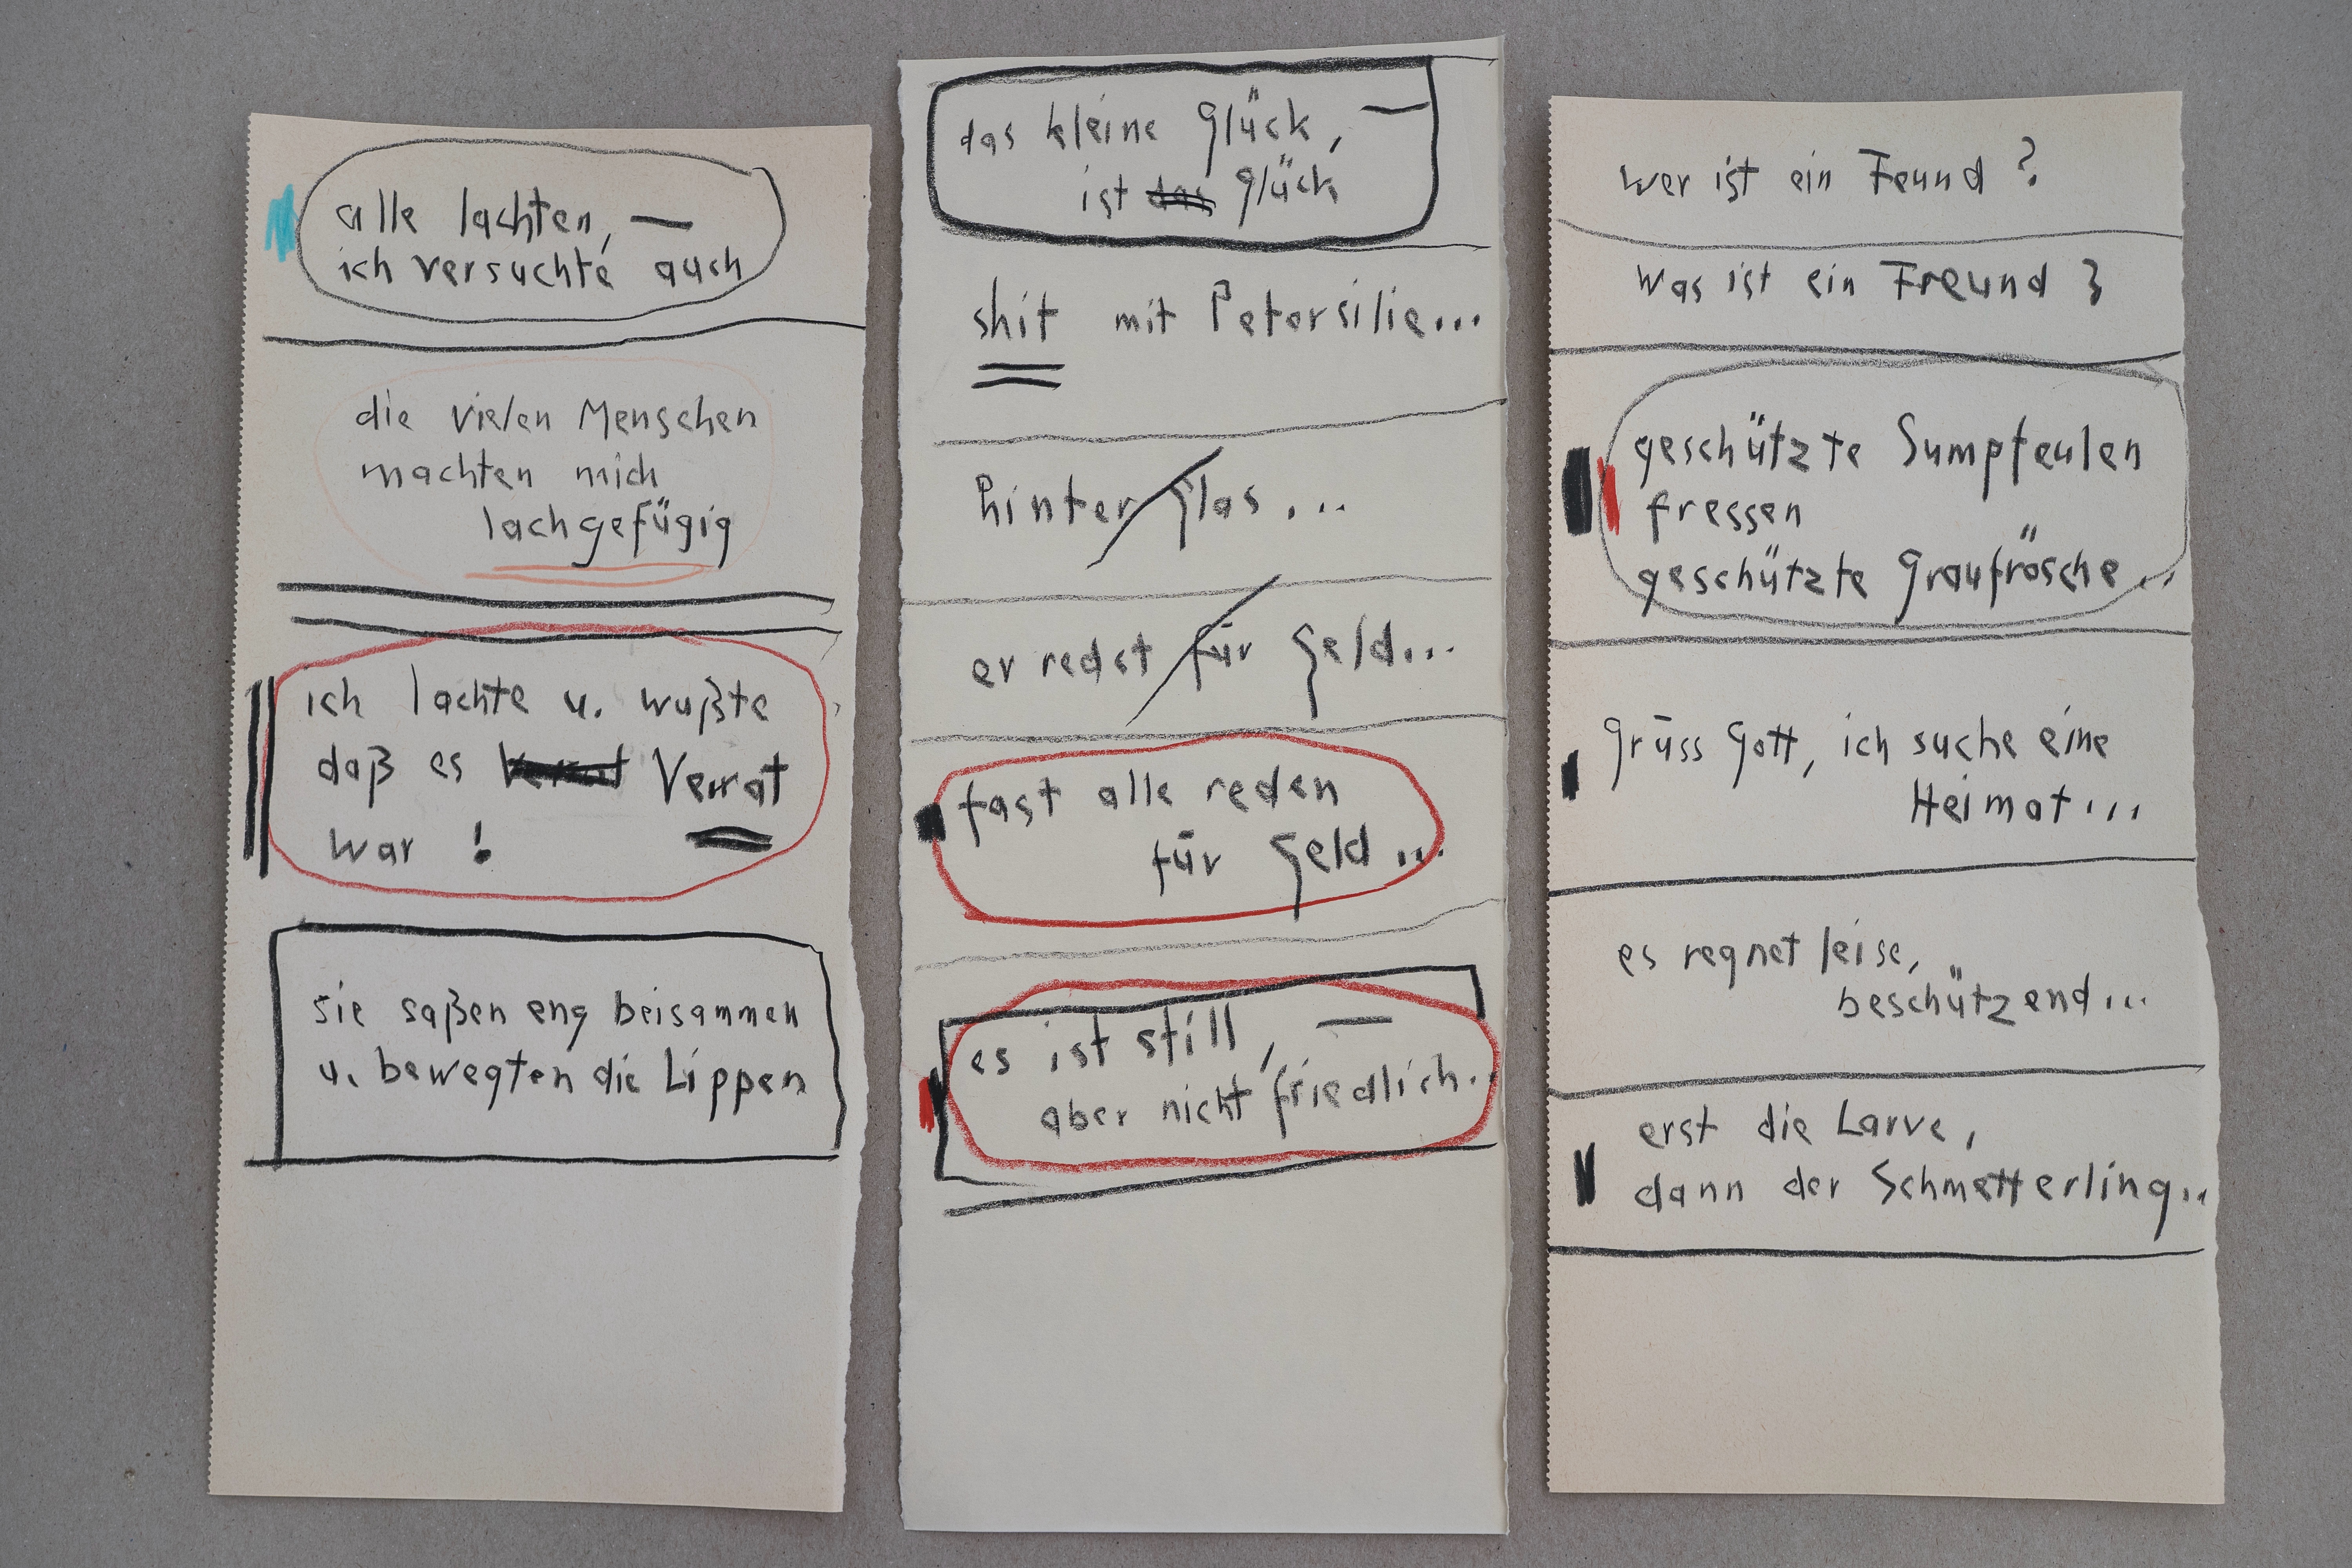 alle lachten, —
ich versuchte auch
die vielen Menschen
machten mich
lachgefügig
ich lachte u. wußte
daß es Verrat Verrat
war !
sie saßen eng beisammen
u. bewegten die Lippen
das kleine Glück, —
ist das Glück
shit mit Petersilie...
hinter Glas...
er redet für Geld...
fast alle reden
für Geld...
es ist still, —
aber nicht friedlich..
wer ist ein Feund ?
Was ist ein Freund ?
geschützte Sumpfeulen
fressen
geschützte Graufrösche...
Grüss Gott, ich suche eine
Heimat...
es regnet leise,
beschützend...
erst die Larve,
dann der Schmetterling...